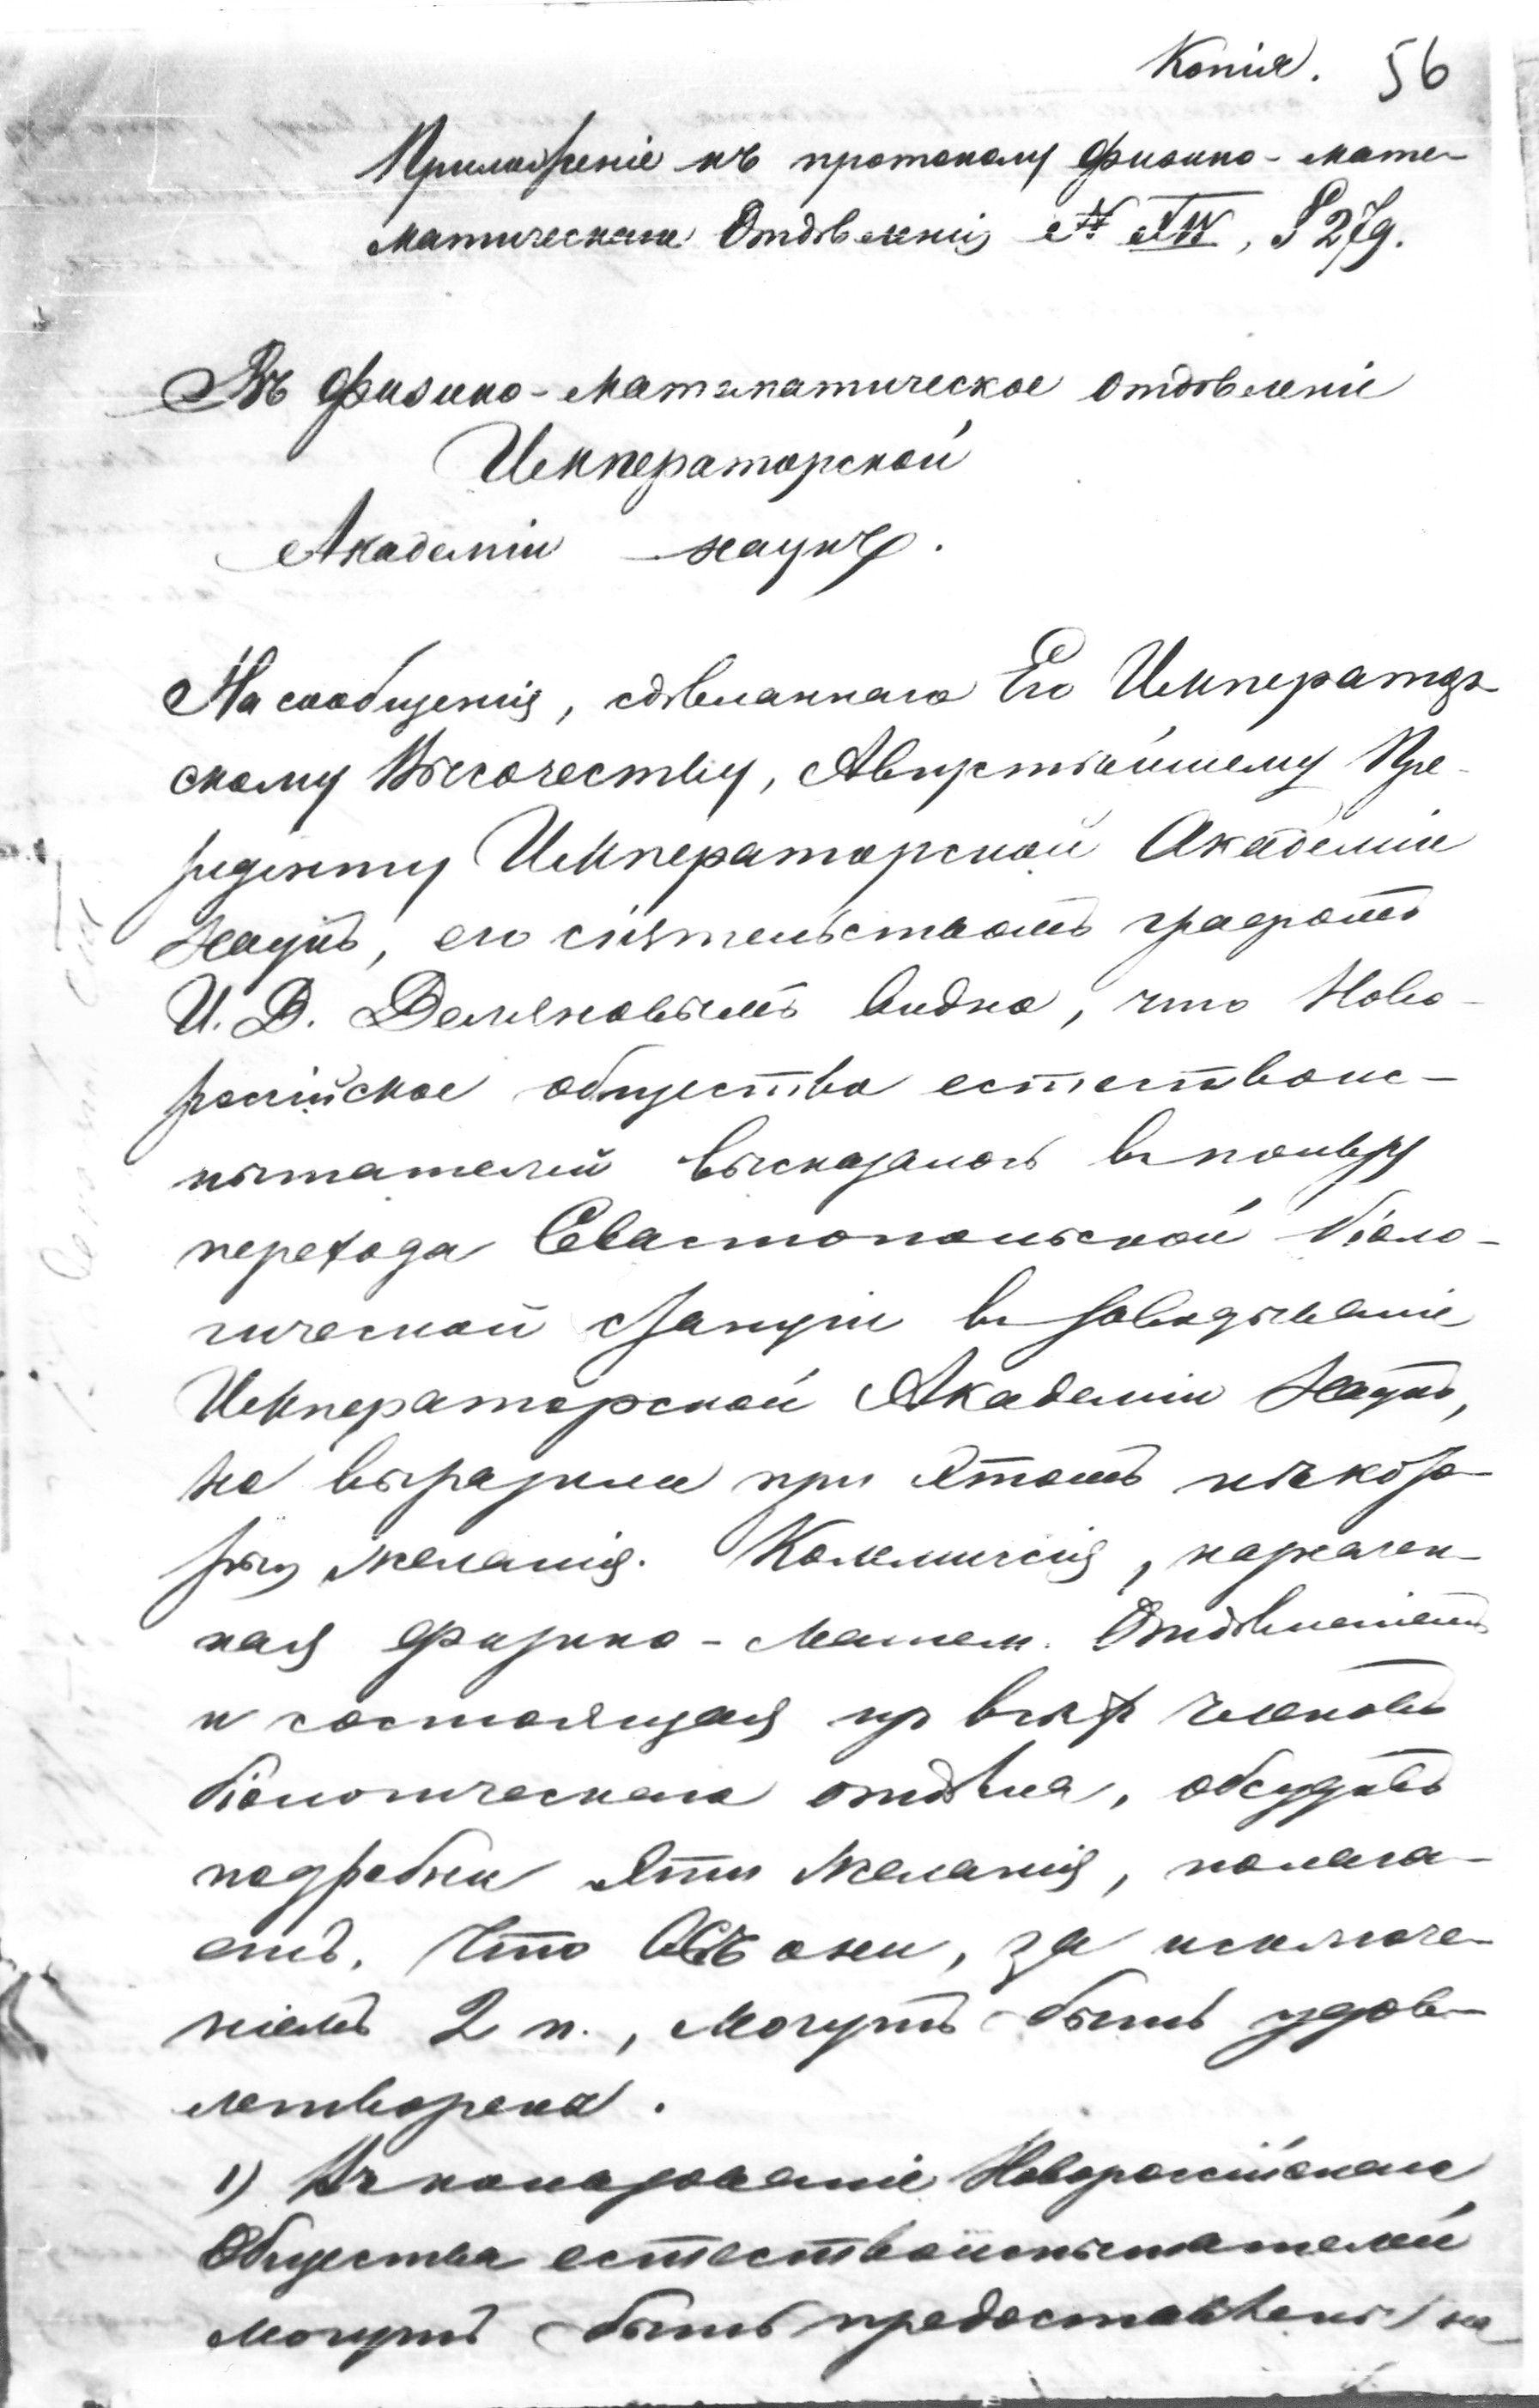 Копія. 56
Приложеніе къ протоколу физико-мате-
матическаго Отдѣленія № XIV, § 279.
Въ физико-математическое отдѣленіе
Императорской
Академіи наукъ.
Из сообщенія, сдѣланнаго Его Император-
скому Высочеству, Августѣйшему Пре-
зиденту Императорской Академіи
Наукъ, его сіятельствомъ графомъ
И. Д. Деляновымъ видно, что Ново-
россійское общество естествоис-
пытателей высказалось въ пользу
перехода Севастопольской біоло-
гической станціи въ завѣдываніе
Императорской Академіи Наукъ,
но выразили при этомъ нѣкото-
рыя желанія. Коммиссія, назначен-
ная физико-Матем. Отдѣленіемъ
и состоящая изъ всѣхъ членовъ
біологическаго отдѣла, обсудивъ
подробно эти желанія, полага-
етъ, что всѣ они, за исключе-
ніемъ 2 п., могутъ быть удов-
летворены.
1) Въ пользованіе Новороссійскаго
Общества естествоиспытателей
могутъ быть предоставлены на